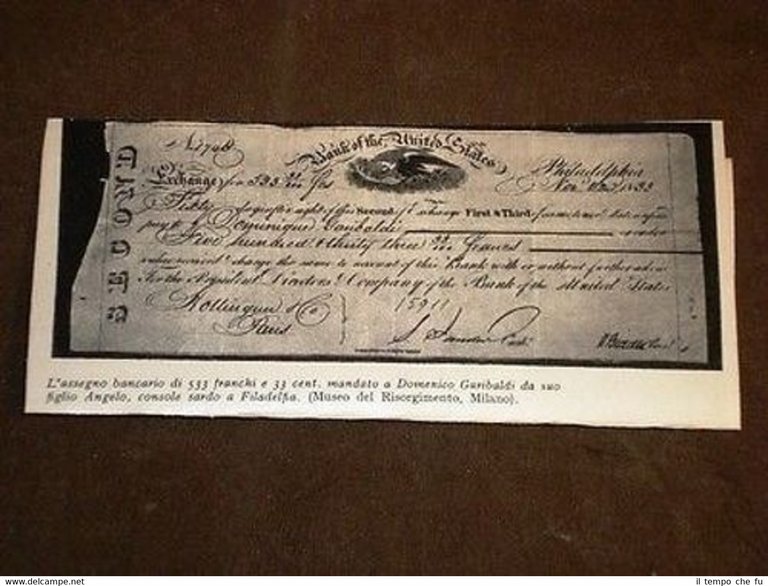 Bank of the United States
Philadelphia
Exchange for 533 33/100 Fcs
Nov. 1833
SECOND
Sixty days after sight of this Second of Exchange First & Third of same
pay to Dominique Garibaldi
Five hundred & thirty three 33/100 Francs
value received & charge the same to account of this Bank with or without further advice
For the President Directors & Company of the Bank of the United States
Hottinguer & Co
Paris
15911
L'assegno bancario di 533 franchi e 33 cent. mandato a Domenico Garibaldi da suo
figlio Angelo, console sardo a Filadelfia. (Museo del Risorgimento, Milano).
il tempo che fu